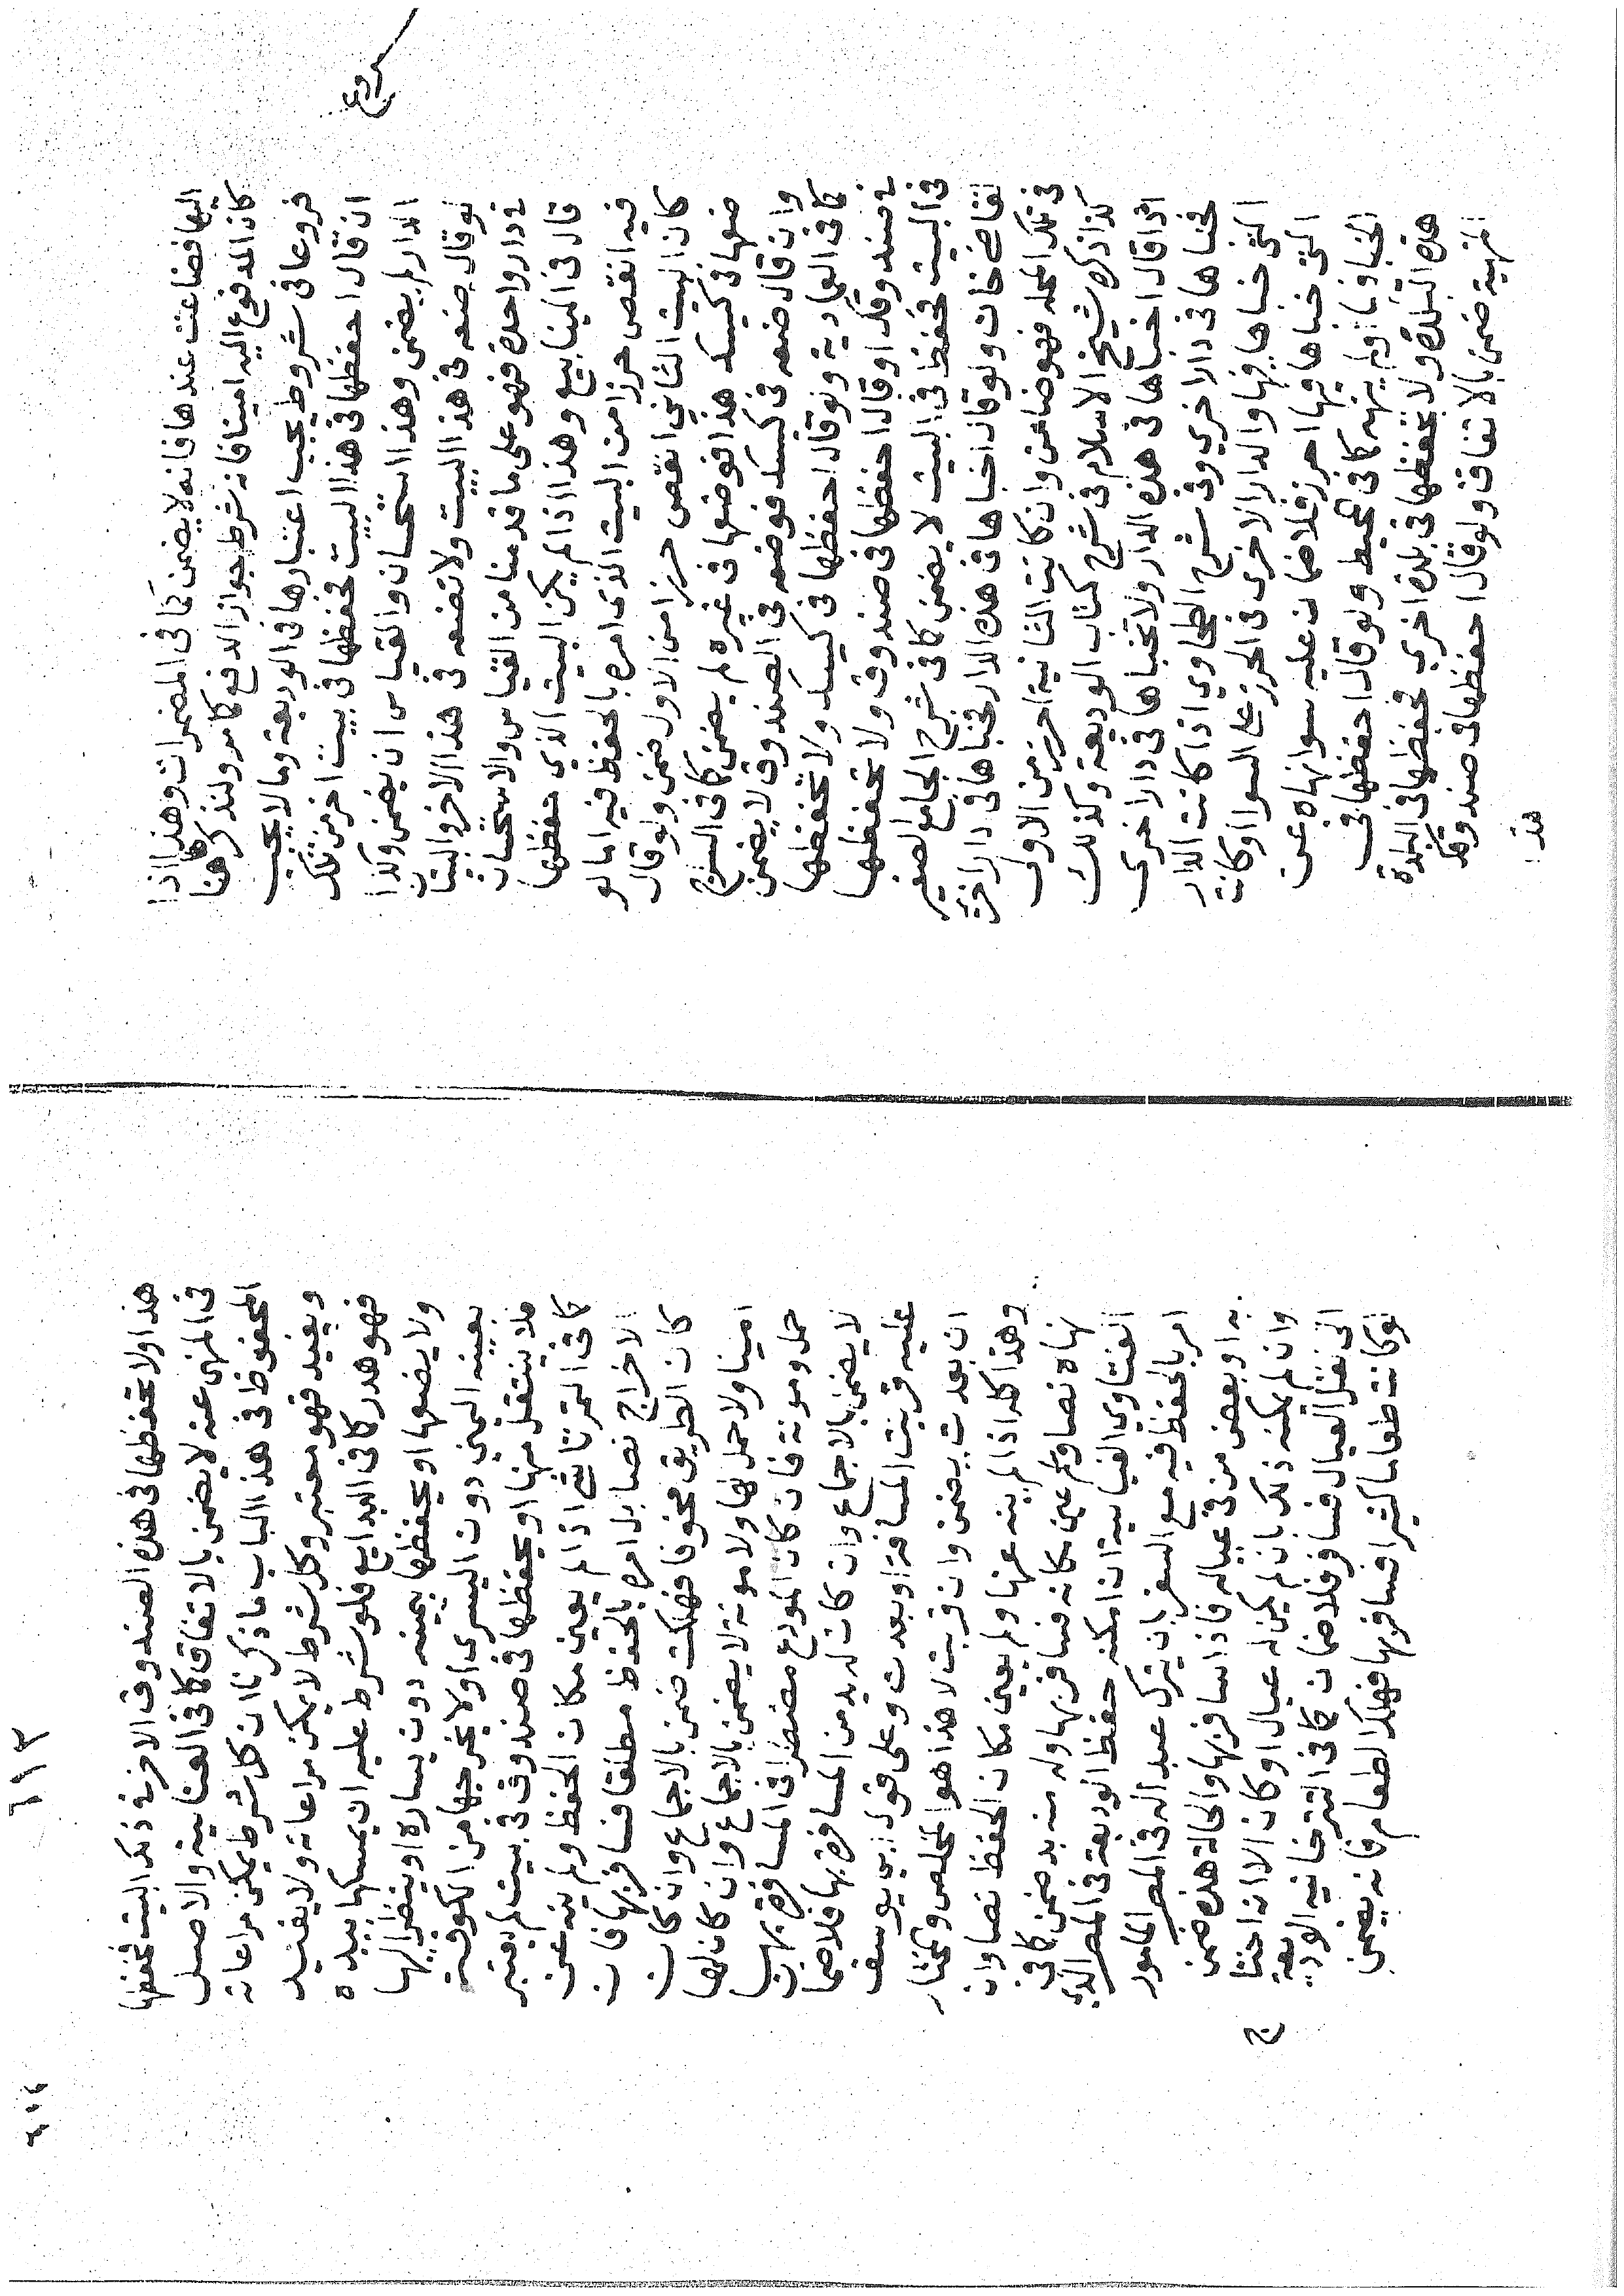 فروع
اليها فضاعت عندها فانه لا يضمن كما في المضمرات وهذا اذا
كان المدفوع اليه امينا فانه شرط جواز الدفع كما مر ولنذكر هنا
فروعا في شروط يجب اعتبارها في الوديعة وما لا يجب
ان قال احفظها في هذا البيت فحفظها في بيت اخر من تلك
الدار لم يضمن وهذا استحسان والقياس ان يضمن وكذا
لو قال ضعه في هذا البيت ولا تضعه في هذا الاخر والبيتان
في دار واحدة فهو على ما قدمنا من القياس والاستحسان
قال في الينابيع وهذا اذا لم يكن البيت الذي حفظها
فيه انقص حرزا من البيت الذي امره بالحفظ فيه اما لو
كان البيت الثاني انقص حرزا من الاول ضمن ولو قال
ضعها في كيسك هذا فوضعها في غيره لم يضمن كما في السراج
وان قال ضعه في كيسك فوضعه في الصندوق لا يضمن
كما في العمادية ولو قال احفظها في كيسك ولا تحفظها
في صندوقك او قال احفظها في صندوق ولا تحفظها
في البيت فحفظ في البيت لا يضمن كما في شرح الجامع الصغير
لقاضي خان ولو قال اخباها في هذه الدار فخباها في دار اخرى
في تلك المحلة فهو ضامن وان كانت الثانية احرز من الاول
كذا ذكره شيخ الاسلام في شرح كتاب الوديعة وكذلك
اذا قال اخباها في هذه الدار ولا تخباها في دار اخرى
فخباها في دار اخري وفي شرح الطحاوي اذا كانت الدار
التي خباها فيها والدار الاخرى في الحرز على السوا او كانت
التي خباها فيها احرز فلا ضمان عليه سوا نهاه عن
الخبا فيها او لم ينهه كما في المحيط ولو قال احفظها في
هذه البلدة ولا تحفظها في بلدة اخري فحفظها في البلدة
المنهية ضمن بالاتفاق ولو قال احفظها في صندوقك
هذا
٦١٣
هذا ولا تحفظها في هذه الصندوق الاخر في ذلك البيت فحفظها
في المنهي عنه لا يضمن بالاتفاق كما في العتابية والاصل
المحفوظ في هذا الباب ما ذكرنا ان كل شرط يمكن مراعاته
ويفيد فهو معتبر وكل شرط لا يمكن مراعاته ولا يفيد
فهو هدر كما في البدايع فلو شرط عليه ان يمسكها بيده
ولا يضعها او يحفظها بيمينه دون يساره او ينظر اليها
بعينه اليمني دون اليسرى او لا يخرجها من الكوفة
فلا ينتقل منها او يحفظها في صندوق في بيت لم يعتبر
كما في التمرتاشي اذا لم يعين مكان الحفظ ولم ينه عن
الاخراج نصا بل امره بالحفظ مطلقا فسافر بها فان
كان الطريق مخوفا فهلكت ضمن بالاجماع وان كان
امينا ولا حمل لها ولا مونة لا يضمن بالاجماع وان كان لها
حمل ومونة فان كان المودع مضطرا في المسافرة بها
لا يضمن بالاجماع وان كان له بد من المسافرة بها فلا ضمان
عليه قربت المسافة او بعدت وعلى قول ابي يوسف
ان بعدت يضمن وان قربت لا هذا هو الملخص والمختار
وهذا كله اذا لم ينه عنها ولم يعين مكان الحفظ نصا وان
نهاه نصا وعين مكانه فسافر بها وله منه بد ضمن كما في
الفتاوي الغياثية ان امكنه حفظ الوديعة في المصر الذي
امر بالحفظ فيه مع السفر بان يترك عبدا له في المصر المامور
به او بعض من في عياله فاذا سافر بها والحالة هذه ضمن
وان لم يمكنه ذلك بان لم يكن له عيال او كان الا انه احتاج
الى نقل العيال فسافر فلا ضمان كما في التترخانية الوديعة
لو كانت طعاما كثيرا فسافر بها فهلك الطعام فانه يضمن